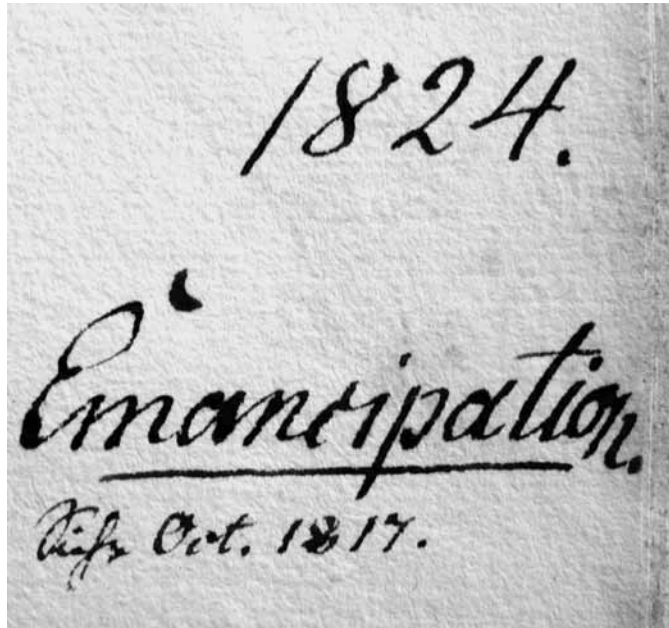 1824.
Emancipation.
Siehe Oct. 1817.